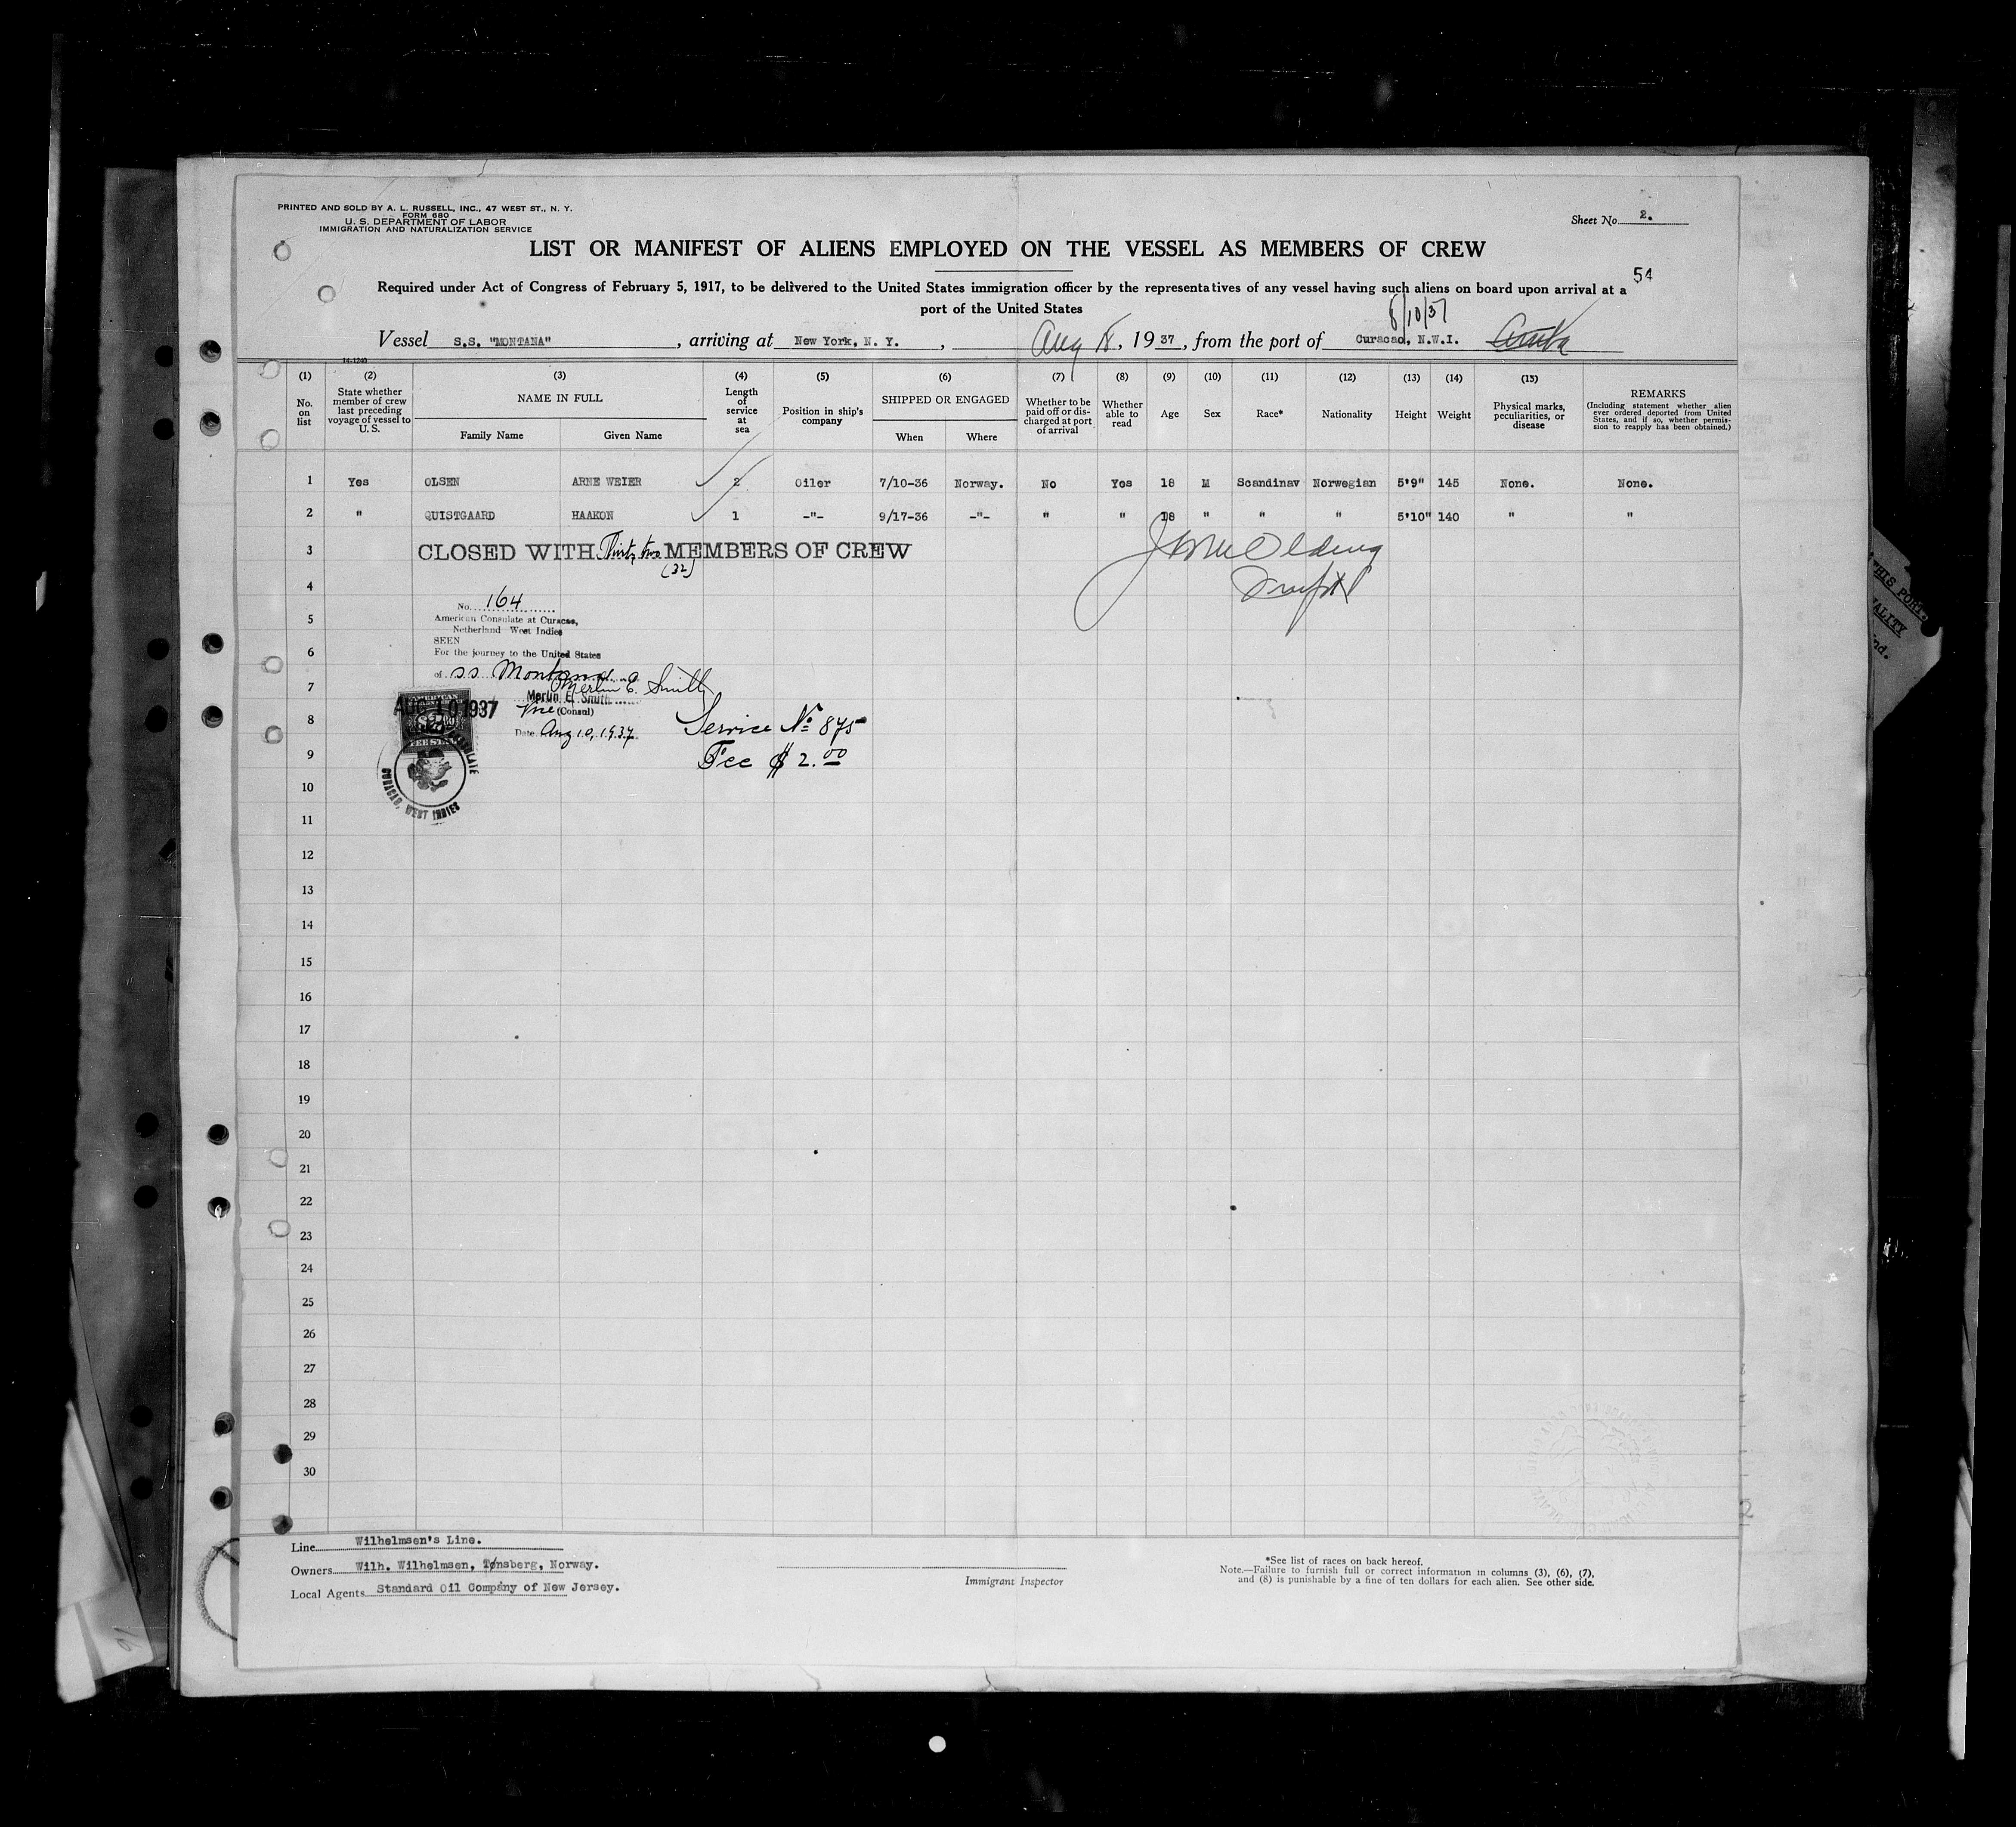 PRINTED AND SOLD BY A. L. RUSSELL, INC., 47 WEST ST., N. Y.
FORM 680
U. S. DEPARTMENT OF LABOR
IMMIGRATION AND NATURALIZATION SERVICE
Sheet No. 2.
LIST OR MANIFEST OF ALIENS EMPLOYED ON THE VESSEL AS MEMBERS OF CREW
54
Required under Act of Congress of February 5, 1917, to be delivered to the United States immigration officer by the representatives of any vessel having such aliens on board upon arrival at a
port of the United States
8/10/37
Vessel S.S. "MONTANA", arriving at New York, N. Y., Aug 18, 1937, from the port of Curacao, N.W.I. Aruba
14-1240
(1) (2) (3) (4) (5) (6) (7) (8) (9) (10) (11) (12) (13) (14) (15)
No. on list
State whether member of crew last preceding voyage of vessel to U. S.
NAME IN FULL
Family Name Given Name
Length of service at sea
Position in ship's company
SHIPPED OR ENGAGED
When Where
Whether to be paid off or discharged at port of arrival
Whether able to read
Age
Sex
Race*
Nationality
Height
Weight
Physical marks, peculiarities, or disease
REMARKS
(Including statement whether alien ever ordered deported from United States, and if so, whether permission to reapply has been obtained.)
1 Yes OLSEN ARNE WEIER 2 Oiler 7/10-36 Norway. No Yes 18 M Scandinav Norwegian 5'9" 145 None. None.
2 " QUISTGAARD HAAKON 1 -"- 9/17-36 -"- " " 18 " " " 5'10" 140 " "
3 CLOSED WITH Thirty two MEMBERS OF CREW
(32)
4
No. 164
5 American Consulate at Curacao,
Netherland West Indies
SEEN
6 For the journey to the United States
of SS Montana
7 Merlin E. Smith
Merlin E. Smith
AUG 10 1937
Vice (Consul)
8 Service No 875
Date Aug 10, 1937
9 Fee $ 2.00
CURACAO, WEST INDIES
10
11
12
13
14
15
16
17
18
19
20
21
22
23
24
25
26
27
28
29
30
Line Wilhelmsen's Line.
Owners Wilh. Wilhelmsen, Tønsberg, Norway.
Local Agents Standard Oil Company of New Jersey.
Immigrant Inspector
*See list of races on back hereof.
Note.—Failure to furnish full or correct information in columns (3), (6), (7),
and (8) is punishable by a fine of ten dollars for each alien. See other side.
THIS PORT.